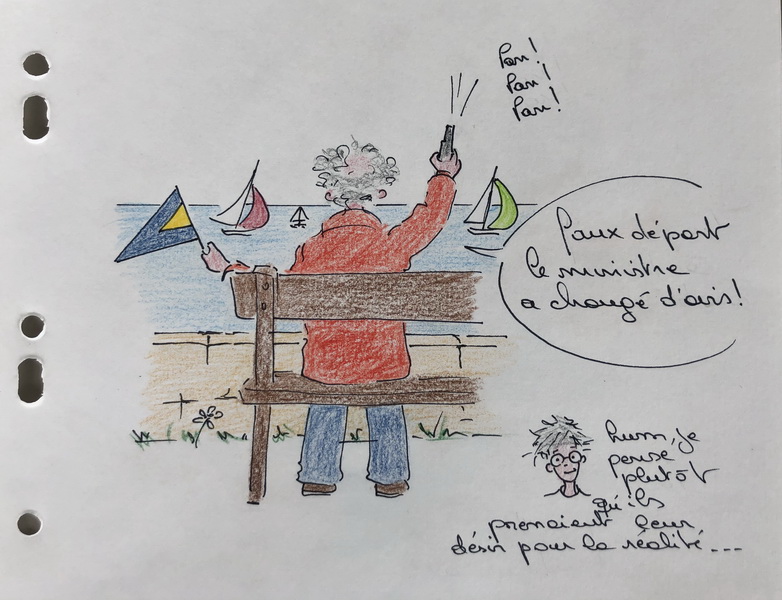 Pan!
Pan!
Pan!
Faux départ
le ministre
a changé d'avis!
hum, je
pense
plutôt
qu'ils
prenaient leur
désir pour la réalité...